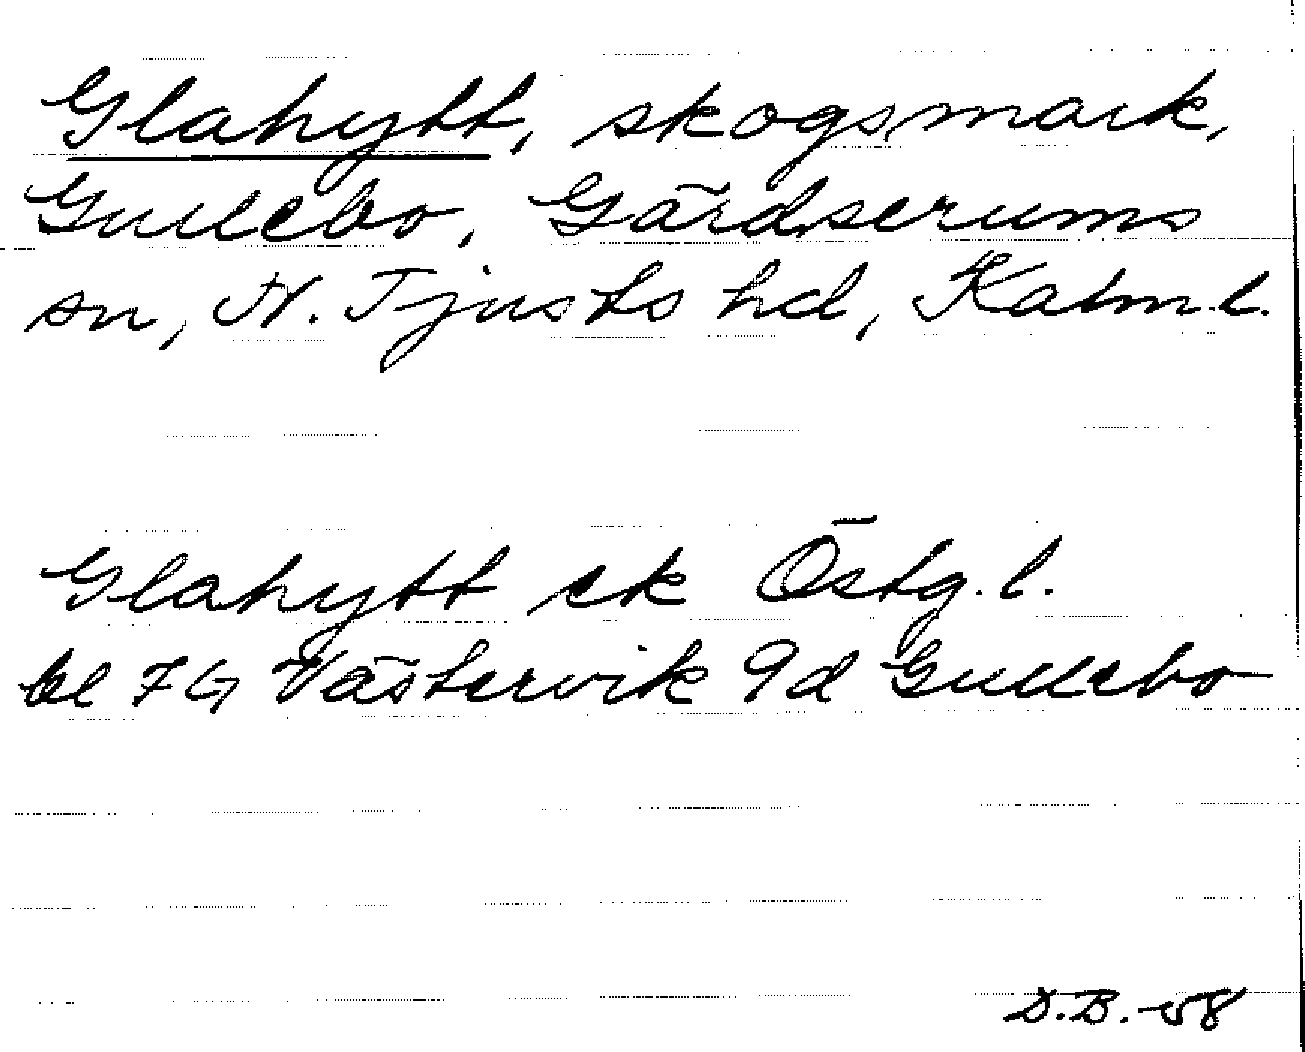 Glahytt, skogsmark,
Gullebo, Gärdserums
sn, N. Tjusts hd, Kalm.l.
Glahytt ek Östg.l.
bl 7G Västervik 9d Gullebo
D.B.-58